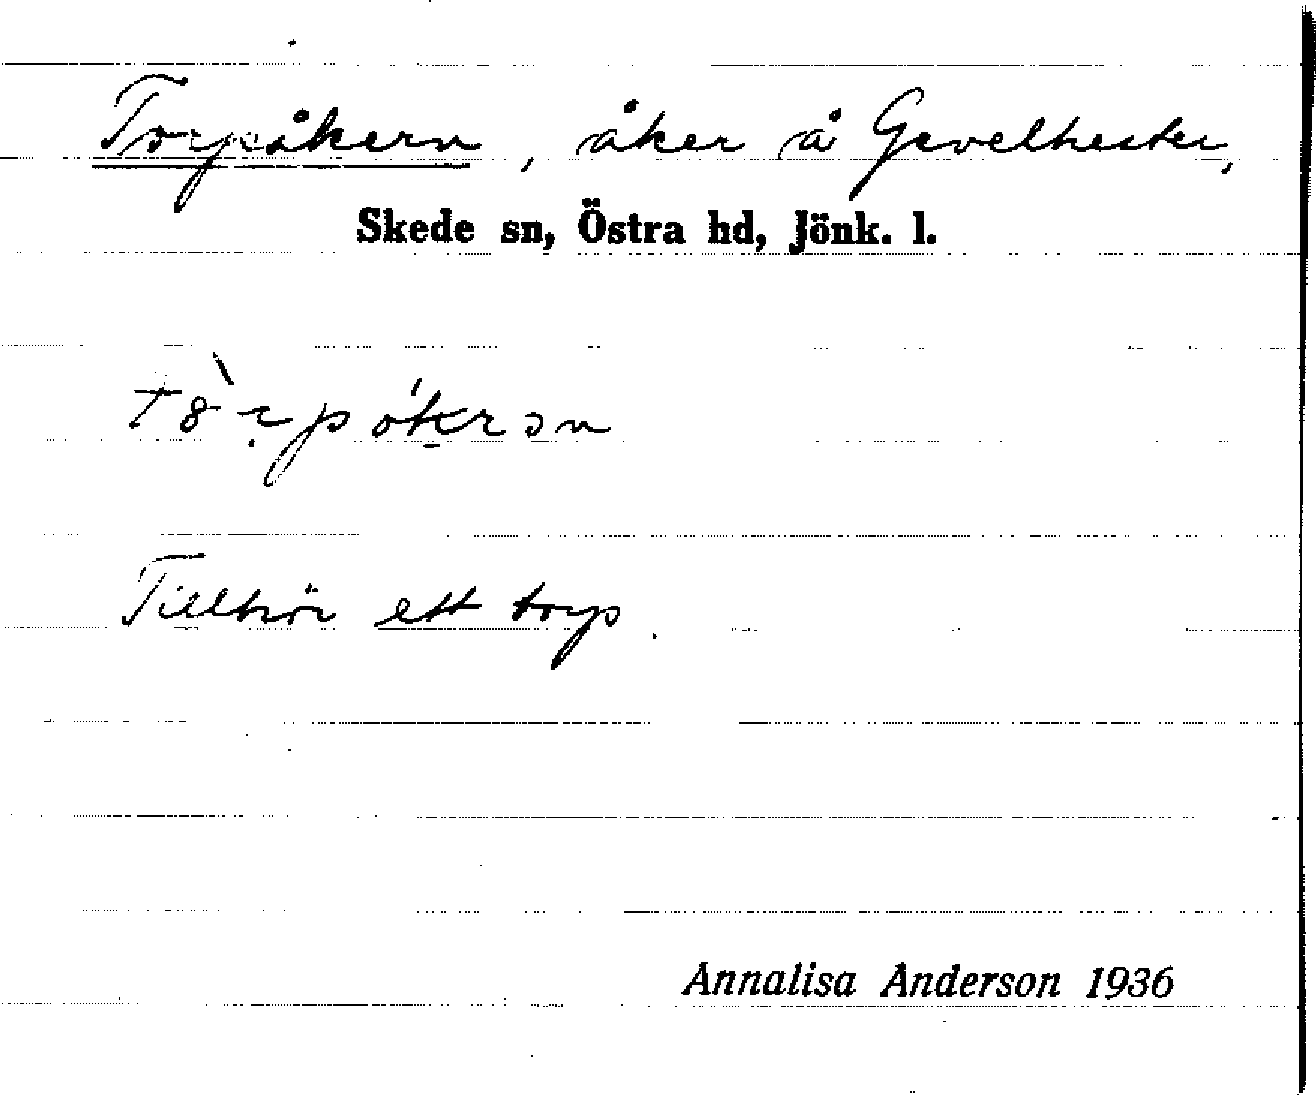 Torpåkern, åker å Gevelhester,
Skede sn, Östra hd, Jönk. l.
Tillhör ett torp.
Annalisa Anderson 1936